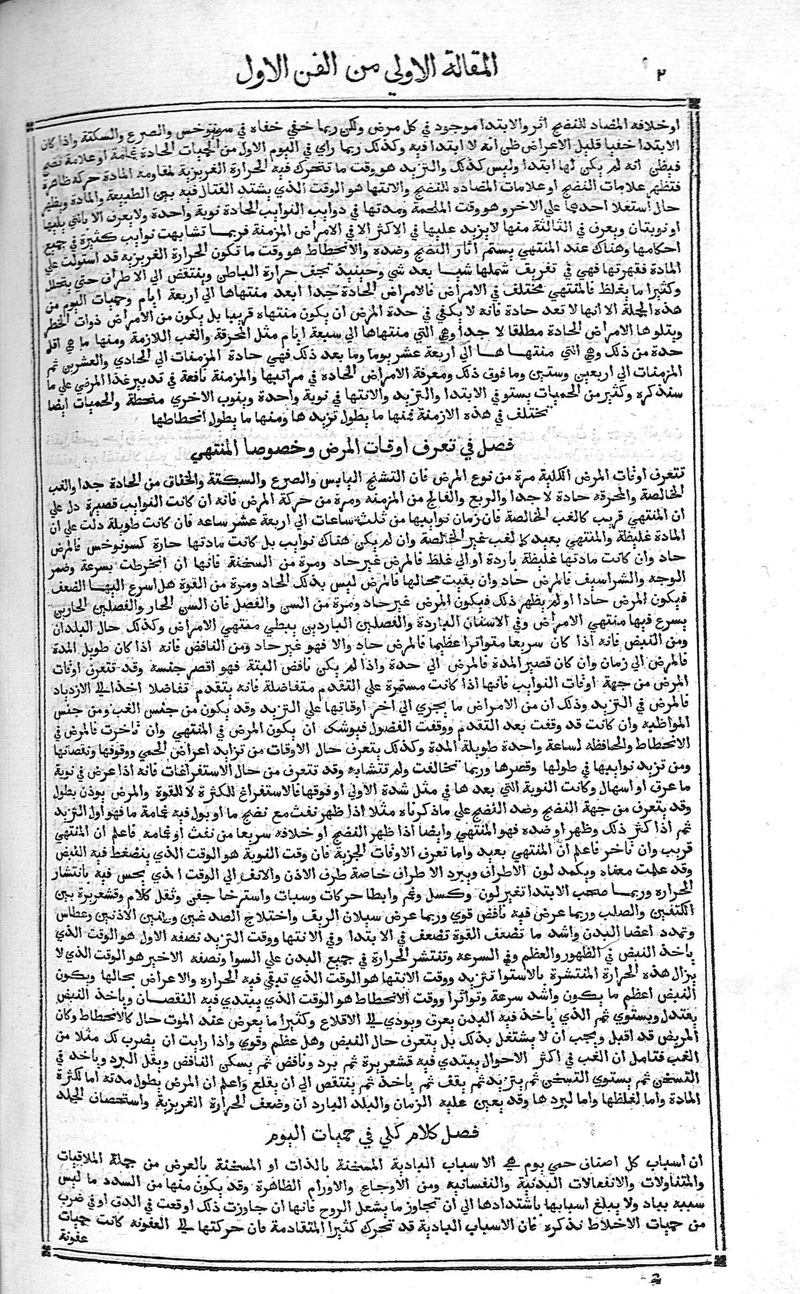 ٢
المقالة الاولي من الفن الاول
او خلافه المضاد للنضج اثر والابتدا موجود في كل مرض ولكن ربما خفي خفاه في سونوخس والصرع والسكتة واذا كان
الابتدا خفيا قليل الاعراض ظن انه لا ابتدا فيه وكذلك ربما راي في اليوم الاول من الحميات الحادة غمامة او علامة نضج
فيظن انه لم يكن لها ابتدا وليس كذلك والتزيد هو وقت ما تتحرك فيه الحرارة الغريزية بمقاومة المادة حركة ظاهرة
فتظهر علامات النضج او علامات المضاده للنضج والانتها هو الوقت الذي يشتد القتال فيه بين الطبيعة والمادة ويظهر
حال استعلا احدهما علي الاخر وهو وقت الملحمة ومدتها في ذوايب النوايب الحادة نوبة واحدة ولا يعرف الا بالتي يليها
او نوبتان ويعرف في الثالثة منها لا يزيد عليها في الاكثر الا في الامراض المزمنة فربما تشابهت نوايب كثيرة في جميع
احكامها وهناك عند المنتهي يستمر اثار النضج وضده والانحطاط هو وقت ما تكون الحرارة الغريزية قد استولت علي
المادة فقهرتها فهي في تفريف شملها شيا بعد شي وحينيذ تجف حرارة الباطن وينتفض الي الاطراف حتي يتحلل
وكثيرا ما يغلط فالمنتهي مختلف في الامراض فالامراض الحادة جدا ابعد منتهاها الي اربعة ايام وحميات اليوم من
هذه الجملة الا انها لا تعد حادة فانه لا يكفي في حدة المرض ان يكون منتهاه قريبا بل يكون من الامراض ذوات الخطر
ويتلوها الامراض الحادة مطلقا لا جدا وهي التي منتهاها الي سبعة ايام مثل المحرقة والغب اللازمة ومنها ما هي اقل
حدة من ذلك وهي التي منتهاها الي اربعة عشر يوما وما بعد ذلك فهي حادة المزمنات الي الحادي والعشرين ثم
المزمنات الي اربعين وستين وما فوق ذلك ومعرفة الامراض الحادة في مراتبها والمزمنة نافعة في تدبير غذا المرضي علي ما
سنذكره وكثير من الحميات يستوي في الابتدا والتزيد والانتها في نوبة واحدة وينوب الاخري منحطة والحميات ايضا
تختلف في هذه الازمنة فمنها ما يطول تزيدها ومنها ما يطول انحطاطها
فصل في تعرف اوقات المرض وخصوصا المنتهي
تتعرف اوقات المرض الكلية مرة من نوع المرض فان التشنج اليابس والصرع والسكتة والخناق من الحادة جدا والغب
الخالصة والمحرقه حادة لا جدا والربع والفالج من المزمنه ومرة من حركة المرض فانه ان كانت النوايب قصيرة دل علي
ان المنتهي قريب كالغب الخالصة فان زمان نوايبها من ثلث ساعات الي اربعة عشر ساعه فان كانت طويلة دلت علي ان
المادة غليظة والمنتهي بعيد كالغب غير الخالصة وان لم يكن هناك نوايب بل كانت مادتها حارة كسونوخس فالمرض
حاد وان كانت مادتها غليظة باردة او الي غلظ فالمرض غير حاد ومرة من السخنة فانها ان انخرطت بسرعة وضمر
الوجه والشراسيف فالمرض حاد وان بقيت بحالها فالمرض ليس بذلك الحاد ومرة من القوة هل اسرع اليها الضعف
فيكون المرض حادا او لم يظهر ذلك فيكون المرض غير حاد ومرة من السن والفصل فان السن الحار والفصلين الحارين
يسرع فيها منتهي الامراض وفي الاسنان الباردة والفصلين الباردين يبطي منتهي الامراض وكذلك حال البلدان
ومن النبض فانه اذا كان سريعا متواترا عظيما فالمرض حاد والا فهو غير حاد ومن النافض فانه اذا كان طويل المدة
فالمرض الي زمان وان كان قصير المدة فالمرض الي حدة واذا لم يكن نافض البتة فهو اقصر جنسه وقد تتعرف اوقات
المرض من جهة اوقات النوايب فانها اذا كانت مستمرة علي التقدم متفاضلة فانه يتقدم تفاضلا اخذا الي الازدياد
فالمرض في التزيد وذلك ان من الامراض ما يجري الي اخر اوقاتها علي التزيد وقد يكون من جنس الغب ومن جنس
المواظبه وان كانت قد وقفت بعد التقدم ووقفت الفصول فيوشك ان يكون المرض في المنتهي وان تاخرت فالمرض في
الانحطاط والحافظه لساعة واحدة طويلة المدة وكذلك يتعرف حال الاوقات من تزايد اعراض الحمي ووقوفها ونقصانها
ومن تزيد نوايبها في طولها وقصرها وربما تخالفت ولم تتشابه وقد تتعرف من حال الاستفراغات فانه اذا عرض في نوبة
ما عرق او اسهال وكانت النوبة التي بعدها في مثل شدة الاولي او فوقها فالاستفراغ للكثرة لا للقوة والمرض يوذن بطول
وقد يتعرف من جهة النضج وضد النضج علي ما ذكرناه مثلا اذا ظهر نفث مع نضج ما او بول فيه غمامة ما فهو اول التزيد
ثم اذا كثر ذلك وظهر او ضده فهو المنتهي وايضا اذا ظهر النضج او خلافه سريعا من نفث او غمامه فاعلم ان المنتهي
قريب وان تاخر فاعلم ان المنتهي بعيد واما تعرف الاوقات الجزية فان وقت النوبة هو الوقت الذي ينضغط فيه النبض
وقد علمت معناه ويكمد لون الاطراف ويبرد الاطراف خاصة طرف الاذن والانف الي الوقت الذي يحس فيه بانتشار
الحراره وربما صحب الابتدا تغير لون وكسل وغم وابطا حركات وسبات واسترخا جفن وثقل كلام وقشعريرة بين
الكتفين والصلب وربما عرض فيه نافض قوي وربما عرض سيلان الريق واختلاج الصدغين وطنين الاذنين وعطاس
وتمدد اعضا البدن واشد ما تضعف القوة تضعف في الابتدا وفي الانتها ووقت التزيد نصفه الاول هو الوقت الذي
ياخذ النبض في الظهور والعظم وفي السرعه وتنتشر الحرارة في جميع البدن علي السوا ونصفه الاخير هو الوقت الذي لا
يزال هذه الحرارة المنتشرة بالاستوا تتزيد ووقت الانتها هو الوقت الذي تبقي فيه الحراره والاعراض بحالها ويكون
النبض اعظم ما يكون واشد سرعة وتواترا ووقت الانحطاط هو الوقت الذي يبتدي فيه النقصان وياخذ النبض
يعتدل ويستوي ثم الذي ياخذ فيه البدن يعرق ويودي الي الاقلاع وكثيرا ما يعرض عند الموت حال كالانحطاط وكان
المريض قد اقبل ويجب ان لا يشتغل بذلك بل يتعرف حال النبض وهل عظم وقوي واذا رايت ان يضرب لك مثلا من
الغب فتامل ان الغب في اكثر الاحوال يبتدي فيه قشعريرة ثم برد ونافض ثم يسكن النافض ويقل البرد وياخذ في
التسخن ثم يستوي التسخن ثم يتزيد ثم يقف ثم ياخذ ثم ينتقص الي ان يقلع واعلم ان المرض يطول مدته اما لكثرة
المادة واما لغلظها واما لبردها وقد يعين عليه الزمان والبلد البارد ان وضعف الحرارة الغريزية واستحصاف الجلد
فصل كلام كلي في حميات اليوم
ان اسباب كل اصناف حمي يوم هي الاسباب البادية المسخنة بالذات او المسخنة بالعرض من جملة الملاقيات
والمتناولات والانفعالات البدنية والنفسانيه ومن الاوجاع والاورام الظاهرة وقد يكون منها من السدد ما ليس
سببه بياد ولا يبلغ اسبابها باشتدادها الي ان تجاوز ما يشعل الروح فانها ان جاوزت ذلك اوقعت في الدق او في ضرب
من حميات الاخلاط نذكره فان الاسباب البادية قد تحرك كثيرا المتقادمة فان حركتها الي العفونه كانت حميات
عفونة